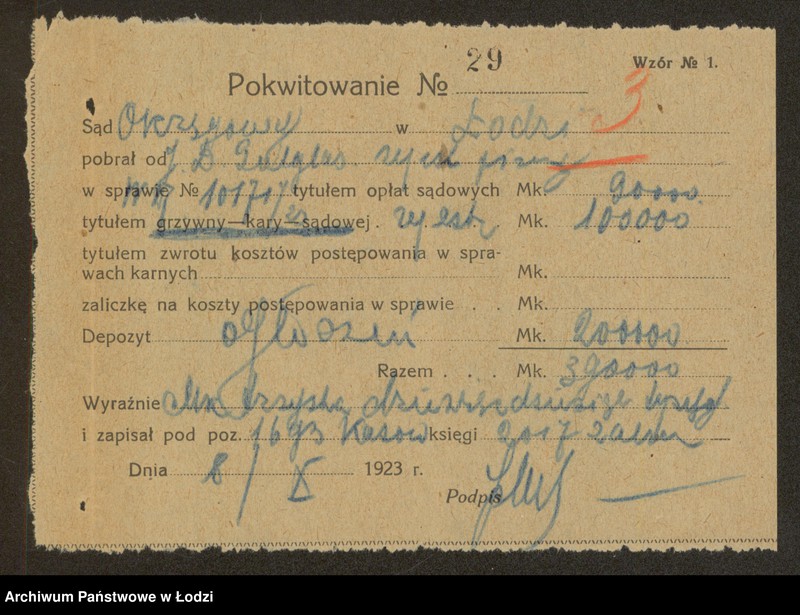 29
Wzór № 1.
Pokwitowanie №
3
Sąd Okręgowy w Łodzi
pobrał od J. D.
w sprawie № 10171 tytułem opłat sądowych Mk. 90000
tytułem grzywny—kary—sądowej. rejestr Mk. 100000
tytułem zwrotu kosztów postępowania w spra-
wach karnych Mk.
zaliczkę na koszty postępowania w sprawie . . Mk.
Depozyt ogłoszeń Mk. 200000
Razem . . . Mk. 390000
Wyraźnie Mk trzysta dziewięćdziesiąt tysięcy
i zapisał pod poz. 1693 Kasow księgi
Dnia 8/X 1923 r.
Podpis
Archiwum Państwowe w Łodzi